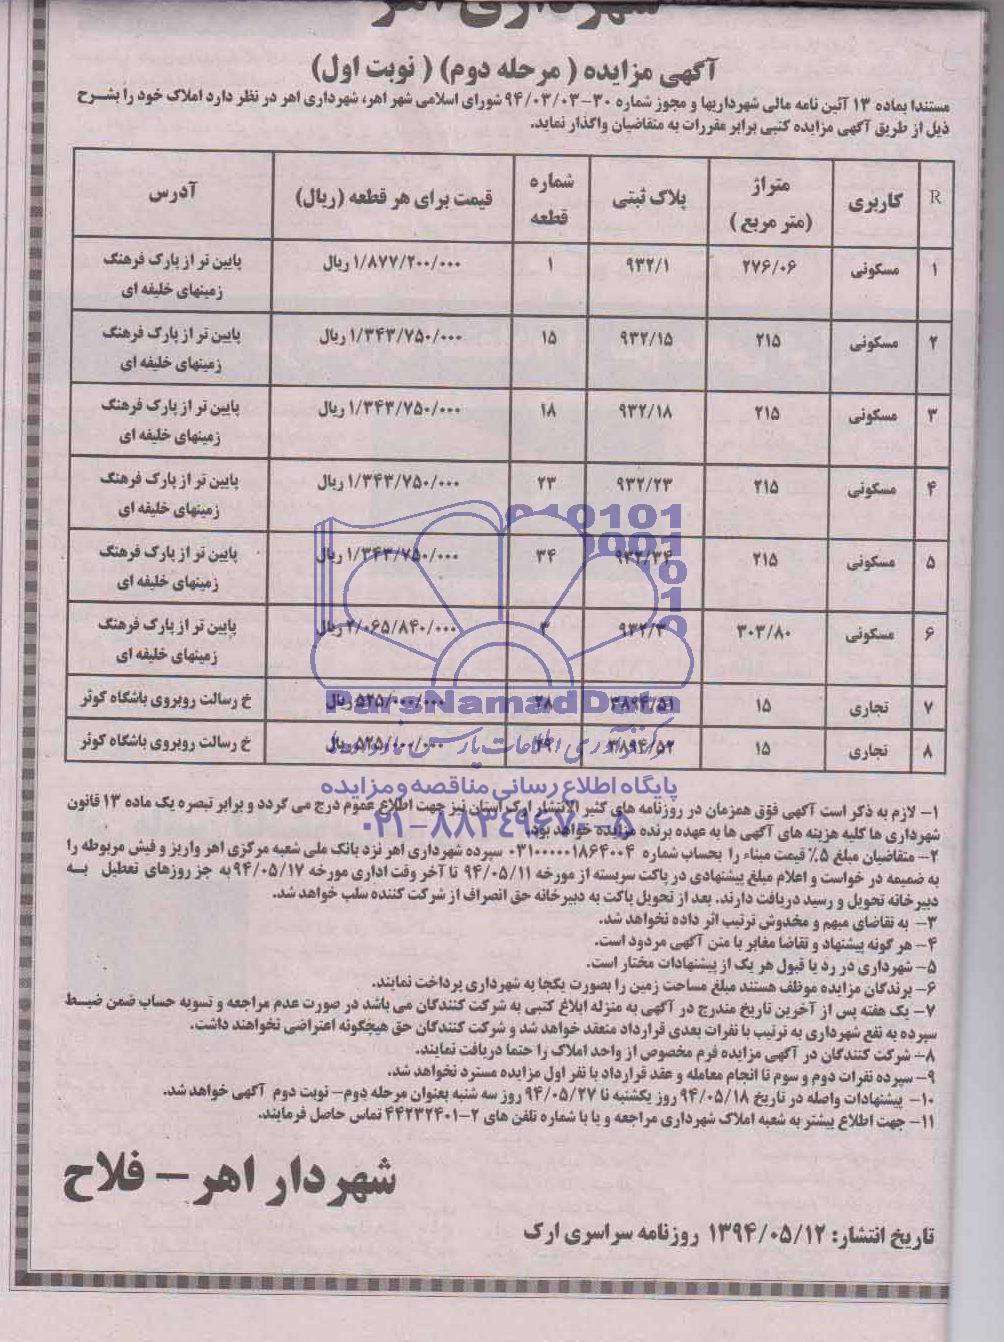 شهرداری اهر
آگهی مزایده ( مرحله دوم) ( نوبت اول)
مستندا بماده ۱۳ آئین نامه مالی شهرداریها و مجوز شماره ۳۰-۹۴/۰۳/۰۳ شورای اسلامی شهر اهر، شهرداری اهر در نظر دارد املاک خود را بشرح
ذیل از طریق آگهی مزایده کتبی برابر مقررات به متقاضیان واگذار نماید.
R کاربری متراژ (متر مربع) پلاک ثبتی شماره قطعه قیمت برای هر قطعه (ریال) آدرس
۱ مسکونی ۲۷۶/۰۶ ۹۳۲/۱ ۱ ۱/۸۷۷/۲۰۰/۰۰۰ ریال پایین تر از پارک فرهنگ
زمینهای خلیفه ای
۲ مسکونی ۲۱۵ ۹۳۲/۱۵ ۱۵ ۱/۳۴۳/۷۵۰/۰۰۰ ریال پایین تر از پارک فرهنگ
زمینهای خلیفه ای
۳ مسکونی ۲۱۵ ۹۳۲/۱۸ ۱۸ ۱/۳۴۳/۷۵۰/۰۰۰ ریال پایین تر از پارک فرهنگ
زمینهای خلیفه ای
۴ مسکونی ۲۱۵ ۹۳۲/۲۳ ۲۳ ۱/۳۴۳/۷۵۰/۰۰۰ ریال پایین تر از پارک فرهنگ
زمینهای خلیفه ای
۵ مسکونی ۲۱۵ ۹۳۲/۳۴ ۳۴ ۱/۳۴۳/۷۵۰/۰۰۰ ریال پایین تر از پارک فرهنگ
زمینهای خلیفه ای
۶ مسکونی ۳۰۳/۸۰ ۹۳۲/۳ ۳ ۲/۰۶۵/۸۴۰/۰۰۰ ریال پایین تر از پارک فرهنگ
زمینهای خلیفه ای
۷ تجاری ۱۵ ۳۸۹۴/۵۱ ۲۸ ۵۲۵/۰۰۰/۰۰۰ ریال خ رسالت روبروی باشگاه کوثر
۸ تجاری ۱۵ ۳۸۹۴/۵۲ ۲۹ ۵۲۵/۰۰۰/۰۰۰ ریال خ رسالت روبروی باشگاه کوثر
ParsNamadData
پایگاه اطلاع رسانی مناقصه و مزایده
۰۲۱-۸۸۳۴۹۶۷۰-۵
۱- لازم به ذکر است آگهی فوق همزمان در روزنامه های کثیر الانتشار ارک استان نیز جهت اطلاع عموم درج می گردد و برابر تبصره یک ماده ۱۳ قانون
شهرداری ها کلیه هزینه های آگهی ها به عهده برنده مزایده خواهد بود.
۲- متقاضیان مبلغ ۵٪ قیمت مبناء را بحساب شماره ۰۳۱۰۰۰۰۰۱۸۶۴۰۰۴ سپرده شهرداری اهر نزد بانک ملی شعبه مرکزی اهر واریز و فیش مربوطه را
به ضمیمه در خواست و اعلام مبلغ پیشنهادی در پاکت سربسته از مورخه ۹۴/۰۵/۱۱ تا آخر وقت اداری مورخه ۹۴/۰۵/۱۷ به جز روزهای تعطیل به
دبیرخانه تحویل و رسید دریافت دارند. بعد از تحویل پاکت به دبیرخانه حق انصراف از شرکت کننده سلب خواهد شد.
۳- به تقاضای مبهم و مخدوش ترتیب اثر داده نخواهد شد.
۴- هر گونه پیشنهاد و تقاضا مغایر با متن آگهی مردود است.
۵- شهرداری در رد یا قبول هر یک از پیشنهادات مختار است.
۶- برندگان مزایده موظف هستند مبلغ مساحت زمین را بصورت یکجا به شهرداری پرداخت نمایند.
۷- یک هفته پس از آخرین تاریخ مندرج در آگهی به منزله ابلاغ کتبی به شرکت کنندگان می باشد در صورت عدم مراجعه و تسویه حساب ضمن ضبط
سپرده به نفع شهرداری به ترتیب با نفرات بعدی قرارداد منعقد خواهد شد و شرکت کنندگان حق هیچگونه اعتراضی نخواهند داشت.
۸- شرکت کنندگان در آگهی مزایده فرم مخصوص از واحد املاک را حتما دریافت نمایند.
۹- سپرده نفرات دوم و سوم تا انجام معامله و عقد قرارداد با نفر اول مزایده مسترد نخواهد شد.
۱۰- پیشنهادات واصله در تاریخ ۹۴/۰۵/۱۸ روز یکشنبه تا ۹۴/۰۵/۲۷ روز سه شنبه بعنوان مرحله دوم- نوبت دوم آگهی خواهد شد.
۱۱- جهت اطلاع بیشتر به شعبه املاک شهرداری مراجعه و یا با شماره تلفن های ۲-۴۴۲۳۲۴۰۱ تماس حاصل فرمایند.
شهردار اهر- فلاح
تاریخ انتشار: ۱۳۹۴/۰۵/۱۲ روزنامه سراسری ارک